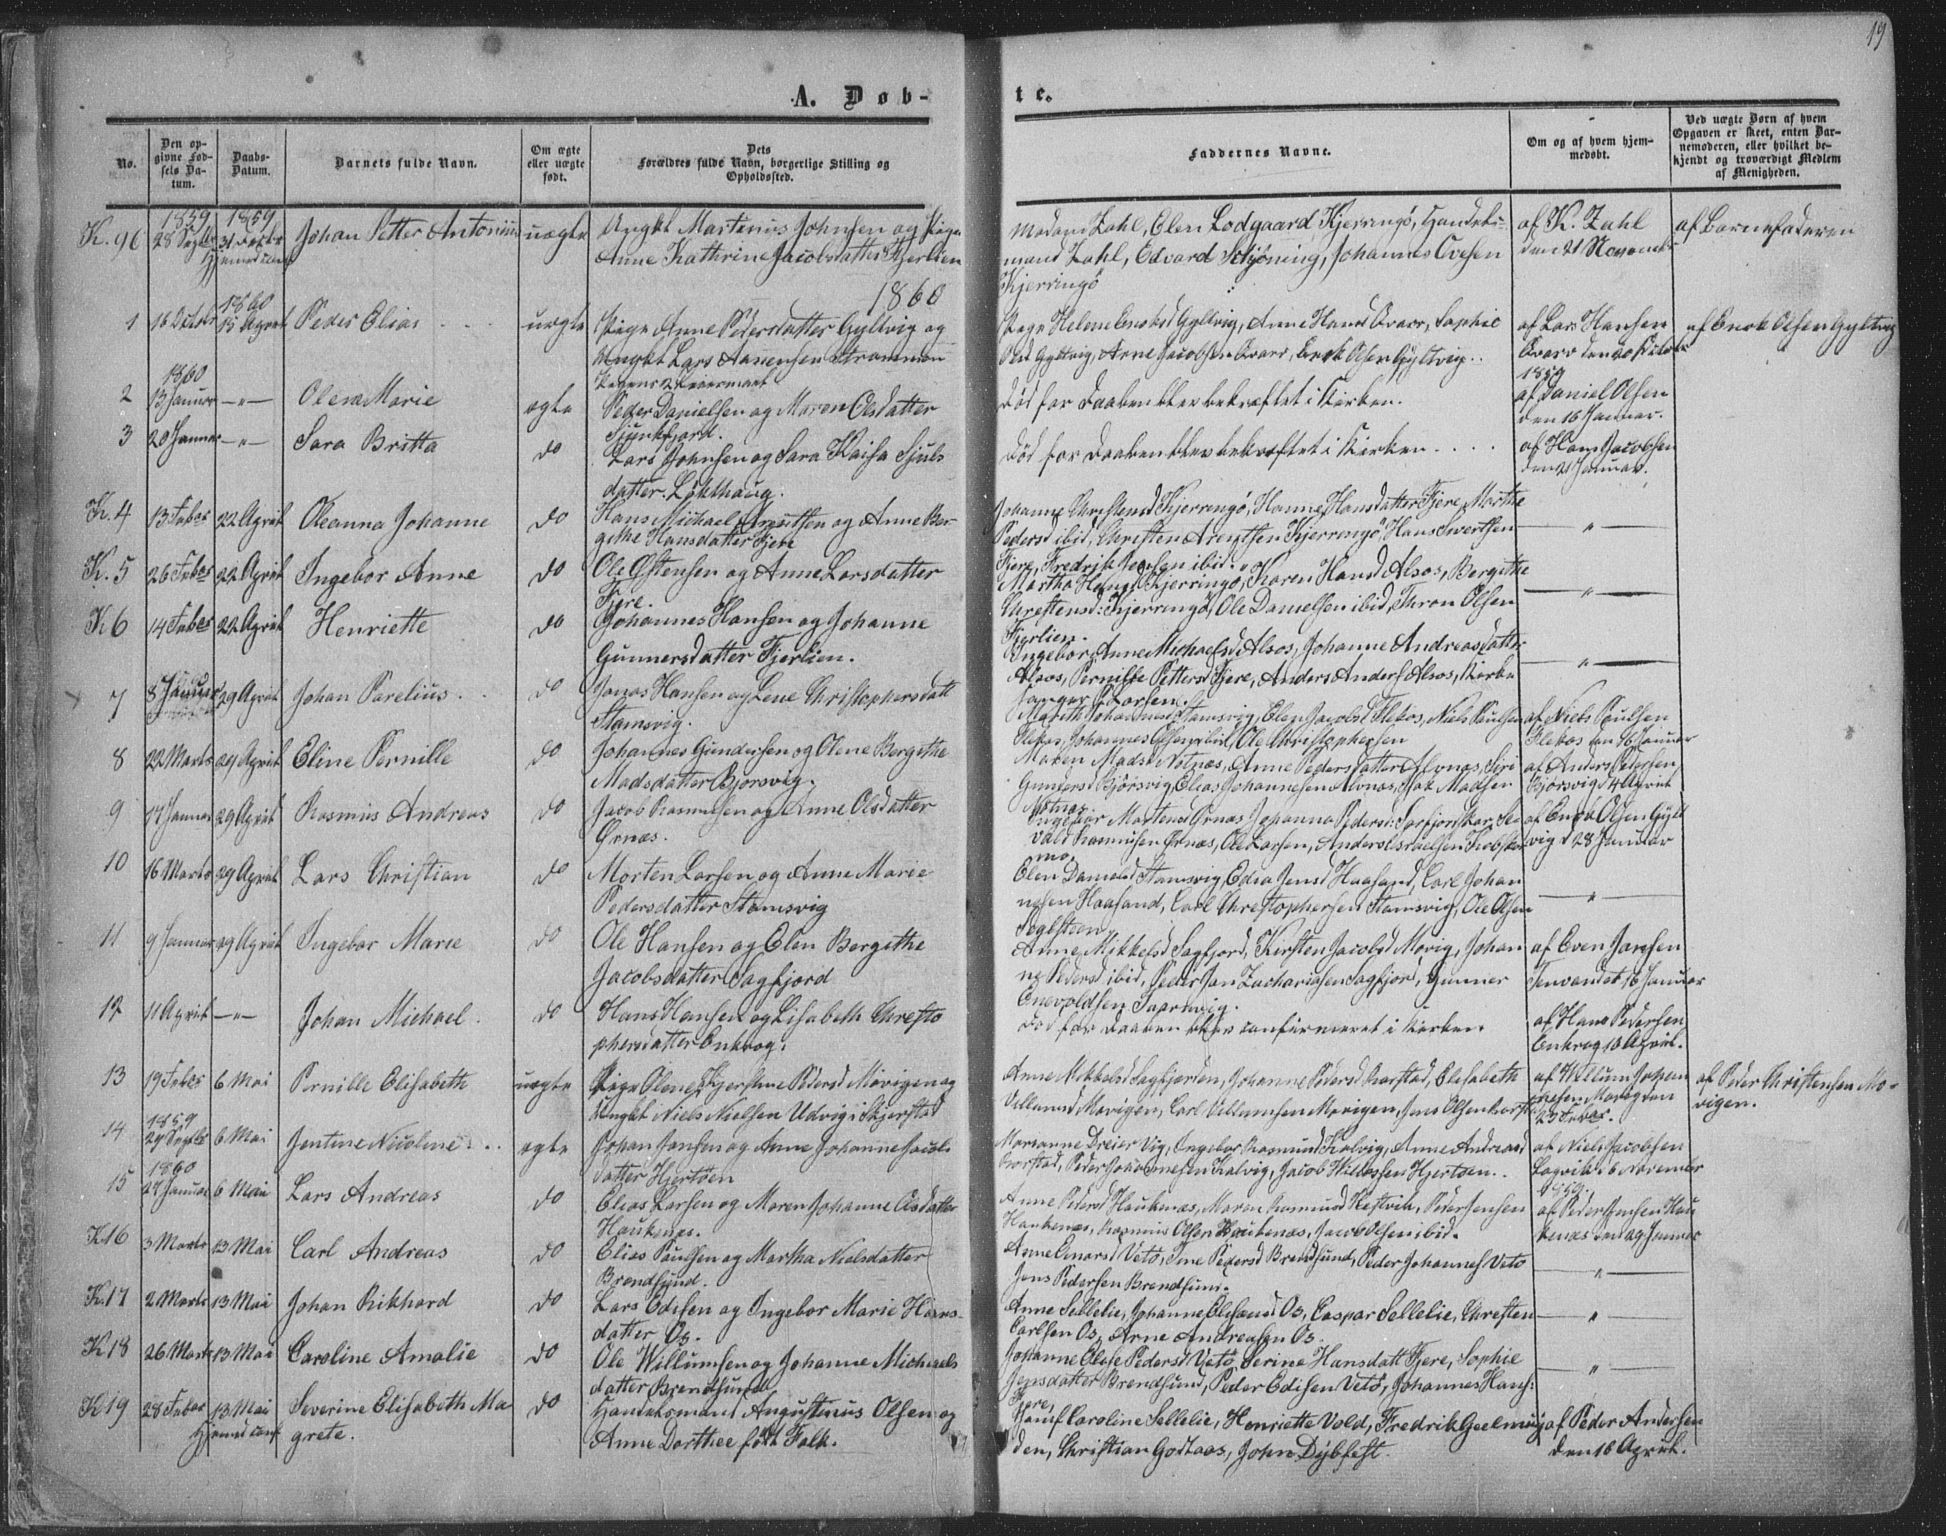 19
A. Døb-
te.
No.
Den opgivne Fødsels Datum.
Daabs-Datum.
Barnets fulde Navn.
Om ægte eller uægte født.
Dets Forældres fulde Navn, borgerlige Stilling og Opholdssted.
Faddernes Navne.
Om og af hvem hjemmedøbt.
Ved uægte Børn af hvem Opgaven er skeet, enten Barnemoderen, eller hvilket bekjendt og troværdigt Medlem af Menigheden.
1859 1859
K. 96 28 Septbr 31 Decbr Johan Petter Antonius uægte Ungkt Martinus Johnsen og Pige
Anne Kathrine Jacobsdatter Fjerlien
Madam Zahl, Elen Lodgaard, Kjerringö, Handels-
mand Zahl, Edvard Schjöning, Johannes Ovesen
Kjerringö
af K. Zahl
den 21 November
af Barnefaderen
1860
1860
1 16 Octobr 15 April Peder Elias uægte Pige Anne Pedersdatter Gyltvig og
Ungkt Lars Strømmen
Pige Helene Enoksd Gyltvig, Anne Hansd Kvarv, Sophie
Olsd Gyltvig, Arne Jacobsen Kvarv, Enok Olsen Gyltvig
af Lars Hansen
Kvarv den 20 October
1859
af Enok Olsen Gyltvig
1860
2 13 Januar -"- Olena Marie ægte Peder Danielsen og Maren Olsdatter
Sjunkfjord.
Död för Daaben blev bekræftet i Kirken.
af Daniel Olsen
den 16 Januar.
3 20 Januar -"- Sara Britta do Lars Johnsen og Sara Kaisa Sjuls
datter. Löklhaug.
Död för Daaben blev bekræftet i Kirken
af Hans Jacobsen
den 21 Januar.
K. 4 13 Febr 22 April Oleanna Johanne do Hans Michael Arentsen og Anne Ber-
githe Hansdatter Fjere
Johanne Christensd Kjerringö, Hanne Hansdatter Fjere, Marthe
Pedersd ibid, Christen Arentsen Kjerringö, Hans Sivertsen
Fjere, Fredrik Jensen ibid.
"
K. 5 26 Febr 22 April Ingebor Anne do Ole Östensen og Anne Larsdatter
Fjere.
Martha Hansd Kjerringö, Karen Hansd Alsos, Bergithe
Christensd: Kjerringö, Ole Danielsen ibid, Thron Olsen
Fjerlien.
"
K 6 14 Febr 22 April Henriette do Johannes Hansen og Johanne
Gunnersdatter Fjerlien.
Ingebor Anne Michaelsd Alsos, Johanne Andreasdatter
Alsos, Pernille Pettersd Fjere, Anders Anders Alsos, Kirke
sanger Larsen.
"
7 8 Januar 29 April Johan Parelius do Jonas Hansen og Lene Christophersdatt
Stamsvig.
Mareth Johannesd Stamsvig, Elen Jacobsd Flekos, Niels Paulsen
Flekos, Johannes Olsen ibid, Ole Christophersen
af Niels Paulsen
Flekos den 16 Januar
8 22 Marts 29 April Eline Pernille do Johannes Gundersen og Olene Bergithe
Madsdatter Bjorsvig.
Maren Madsd Notnæs, Anne Pedersdatter Alvnæs, Siri
Gundersd Björsvig, Elias Johannesen Alvnæs, Isak Madsen
Notnæs.
af Anders Petersen
Bjorsvig d 4 April
9 17 Januar 29 April Rasmus Andreas do Jacob Rasmusen og Anne Olsdatter
Ornæs.
Ingebor Martensd Ornæs, Johanna Pedersd:
vald Rasmusen Ornæs, Ole Larsen, Anders Israelsen
af Enok Olsen Gylt
vig d 28 Januar
10 16 Marts 29 April Lars Christian do Morten Larsen og Anne Marie
Pedersdatter Stamsvig
Elen Danielsd Stamsvig, Jensd Haasand, Carl Johan
nesen Haasand, Carl Christophersen Stamsvig, Ole Olsen
"
11 9 Januar 29 April Ingebor Marie do Ole Hansen og Elen Bergithe
Jacobsdatter Sagfjord
Anne Mikkelsd Sagfjord, Kirsten Jacobsd Mövig, Johan
ne Pedersd ibid, Peder Jan Zachariasen Sagfjord, Gunner
Enevoldsen
af Even Jansen
16 Januar
12 11 April -"- Johan Michael. do Hans Hansen og Lisabeth Christo
phersdatter Enkrog.
Död för Daaben blev confirmeret i Kirken.
af Hans Pedersen
Enkrog 10 April.
13 19 Febr 6 Mai Pernille Elisabeth uægte Pige Olene Kjerstine Pedersd Mövigen og
Ungkt Niels Nielsen Udvig i Skjerstad
Anne Mikkelsd Sagfjorden, Johanne Pedersd Korstad, Elisabeth
Villumsd Mörigen, Carl Villumsen Morigen, Jens Olsen Korstad
23 Febr.
af Peder Christensen Mo-
vigen.
1859
14 29 Septbr 6 Mai Jentine Nicoline ægte Johan Jansen og Anne Johanne Jacobs
datter Hjertöen
Marianne Dreier Vig, Ingebor Rasmusd Kalvig, Anne Andreasd
Korstad, Peder Johannesen Kalvig, Jacob Hjertöen.
af Niels Jacobsen
6 November
1859.
1860
15 24 Januar 6 Mai Lars Andreas do Elias Larsen og Maren Johanne Olsdatter
Haukenæs.
Anne Pedersd Haukenæs, Maren Rasmusd Kistvik, Peder Jensen
Haukenæs, Rasmus Olsen Haukenæs, Jacob Olsen ibid.
af Peder Jensen Hau
kenæs den 29 Januar
K 16 3 Marts 13 Mai Carl Andreas do Elias Paulsen og Martha Nielsdatter
Brendsund.
Anne Einarsd Vetö, Pedersd Brendsund, Peder Johannes Vetö
Jens Pedersen Brendsund.
"
K. 17 2 Marts 13 Mai Johan Rikhard do Lars Edisen og Ingebor Marie Hans-
datter Os.
Anne Sellelie, Johanne Os, Caspar Sellelie, Christen
Carlsen Os, Arne Andreasen Os.
"
K 18 26 Marts 13 Mai Caroline Amalie do Ole Willumsen og Johanne Michaels
datter Brendsund
Johanne Pedersd Vetö, Serine Hansdatt Fjere, Sophie
Jensdatter Brendsund, Peder Edisen Vetö, Johannes Hans:
Fjere,
"
K 19 28 Febr 13 Mai Severine Elisabeth Ma
grete.
do Handelsmand Augustinus Olsen og
Anne Dorthee født Falk.
Jomf Caroline Sellelie, Henriette Vold, Fredrik Geelmuy-
den, Christian Godtaas, John Dybfest
af Peder Andersen
den 16 April.